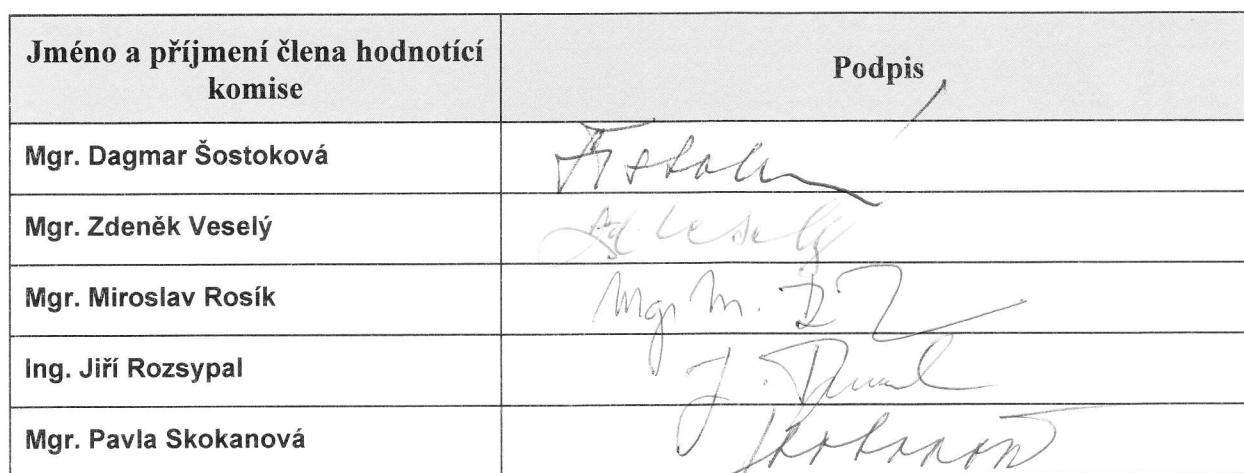 Jméno a příjmení člena hodnotící
komise
Podpis
Mgr. Dagmar Šostoková
Mgr. Zdeněk Veselý
Zd. Veselý
Mgr. Miroslav Rosík
Mgr. M.
Ing. Jiří Rozsypal
J.
Mgr. Pavla Skokanová